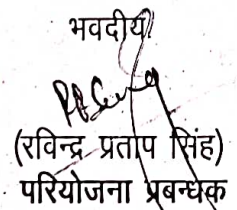 भवदीय
(रविन्द्र प्रताप सिंह)
परियोजना प्रबन्धक